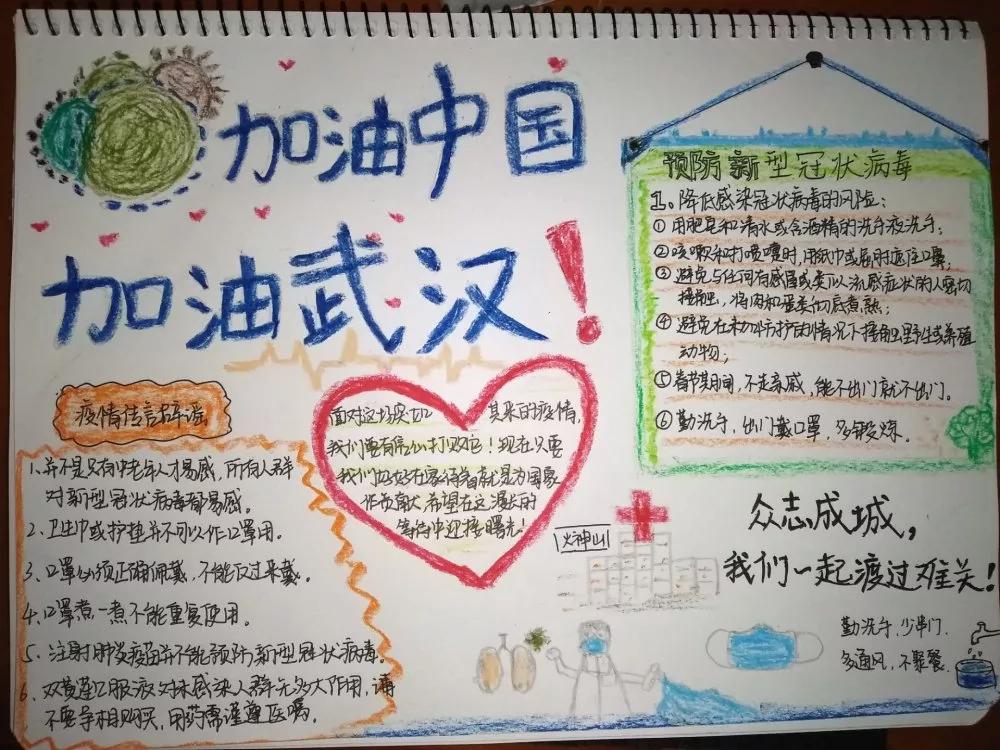 加油中国
加油武汉！
预防新型冠状病毒
1。降低感染冠状病毒的风险：
①用肥皂和清水或含酒精的洗手液洗手；
②咳嗽和打喷嚏时，用纸巾或屈肘遮住口鼻；
③避免与任何有感冒或类似流感症状的人密切
接触，将肉和蛋类彻底煮熟；
④避免在未加防护的情况下接触野生或养殖
动物；
⑤春节期间，不走亲戚，能不出门就不出门。
⑥勤洗手，出门戴口罩，多锻炼。
疫情传言辟谣
1、并不是只有中老年人才易感，所有人群
对新型冠状病毒都易感。
2、卫生巾或护垫并不可以作口罩用。
3、口罩必须正确佩戴，不能反过来戴。
4、口罩煮一煮不能重复使用。
5、注射肺炎疫苗并不能预防新型冠状病毒。
6、双黄连口服液对未感染人群无多大作用，请
不要争相购买，用药需谨遵医嘱。
面对这场突如其来的疫情，
我们要有信心打败它！现在只要
我们好好在家待着就是为国家
作贡献 希望在这漫长的
等待中迎接曙光！
火神山
众志成城，
我们一起渡过难关！
勤洗手，少串门，
多通风，不聚餐。